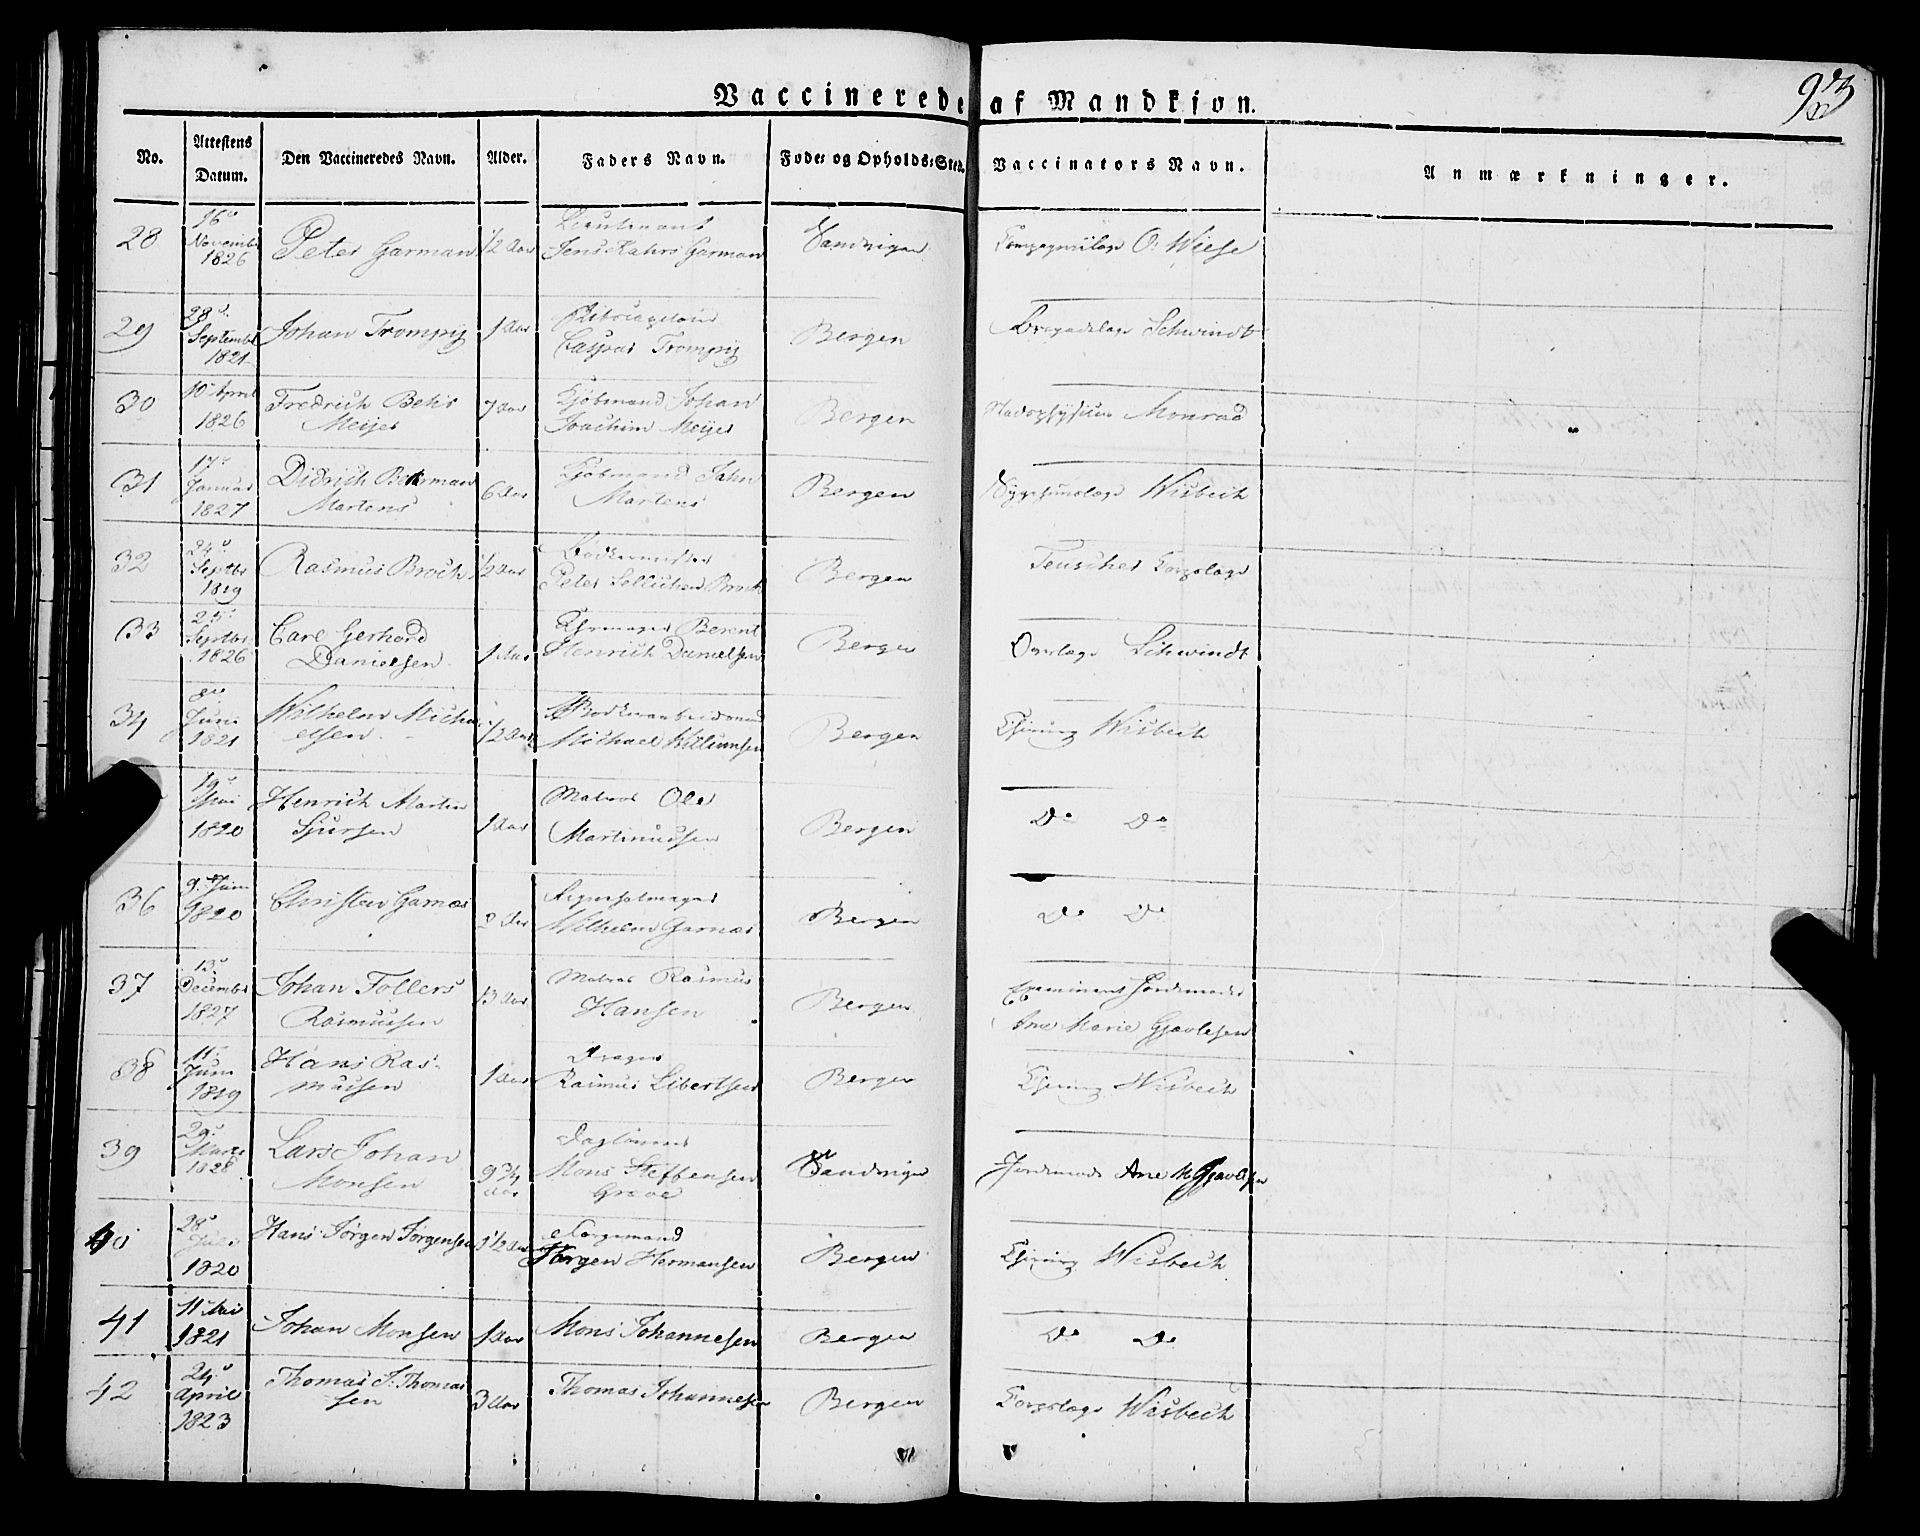 Vaccinerede af Mandkjon.
No.
Attestens Datum.
Den Vaccineredes Navn.
Alder.
Faders Navn.
Føde- og Opholds-Sted.
Vaccinators Navn.
Anmærkninger.
28
16
Novembr
1826
Peter Garman
1/2 Aar
Lieutenant
Jens Kahrs Garman
Sandvigen
O. Wiese
29
28
Septembr
1821
Johan Trompig
1 Aar
Caspar Trompig
Bergen
Brigadelæge Schwindt
30
10 April
1826
Fredrich Behr
Meyer
7 Aar
Kjøbmand Johan
Joachim Meyer
Bergen
Stadsphysicus Monrad
31
17
Januar
1827
Didrich Behrman
Martens
6 Aar
Kjøbmand Jahn
Martens
Bergen
Wisbech
32
24
Septbr
1819
Rasmus Broch
1/2 Aar
Bødkermester
Peter Sellichen Broch
Bergen
Teuscher Corpslæge
33
25
Septbr
1826
Carl Gerhard
Danielsen
1 Aar
Berent
Henrich Danielsen
Bergen
Schwindt
34
8de
Juni
1821
Wilhelm Micha
elsen
1/2 Aar
Michael Willumsen
Bergen
Chirurg Wisbech
19
Mai
1820
Henrich Martin
Sjursen
1 Aar
Matros Ole
Martinussen
Bergen
Do Do
36
9. Juni
1820
Christen Garnæs
2 Aar
Wilhelm Garnæs
Bergen
Do Do
37
13
Decembr
1827
Johan Follers
Rasmussen
13 Aar
Matros Rasmus
Hansen
Bergen
Examineret Jordemoder
Ane Marie Gjavlesen
38
11
Juni
1819
Hans Ras-
mussen
1 Aar
Drager
Rasmus Libertsen
Bergen
Chirurg Wisbech
39
29
Marts
1828
Lars Johan
Monsen
9 3/4
Aar
Dagløner
Mons Steffensen
Grave
Sandvigen
Jordemoder Ane M Gjavlesen
40
28
Juli
1820
Hans Jørgen Jørgensen
1 1/2 Aar
Jørgen Hermansen
Bergen
Chirurg Wisbech
41
11 Mai
1821
Johan Monsen
1 Aar
Mons Johannesen
Bergen
Do Do
42
24
April
1823
Thomas J. Thomas
sen
3 Aar
Thomas Johannesen
Bergen
Corpslæge Wisbech